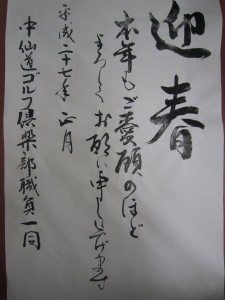 迎春
本年もご愛顧のほど
よろしくお願い申し上げます
平成二十七年 正月
中仙道ゴルフ倶楽部職員一同